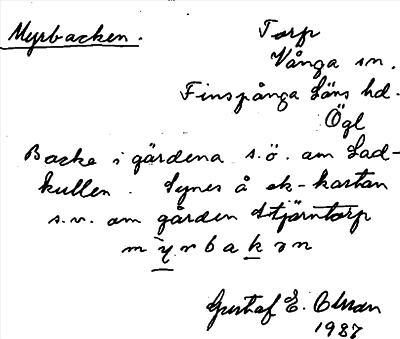 Myrbacken.
Torp
Vånga sn.
Finspånga Läns hd.
Ögl
Backe i gärdena s.ö. om Lad-
kullen. Synes å ek-kartan
s.v. om gården Stjärntorp
m ỳ r b a k ə n
Gustaf E. Olsson
1987